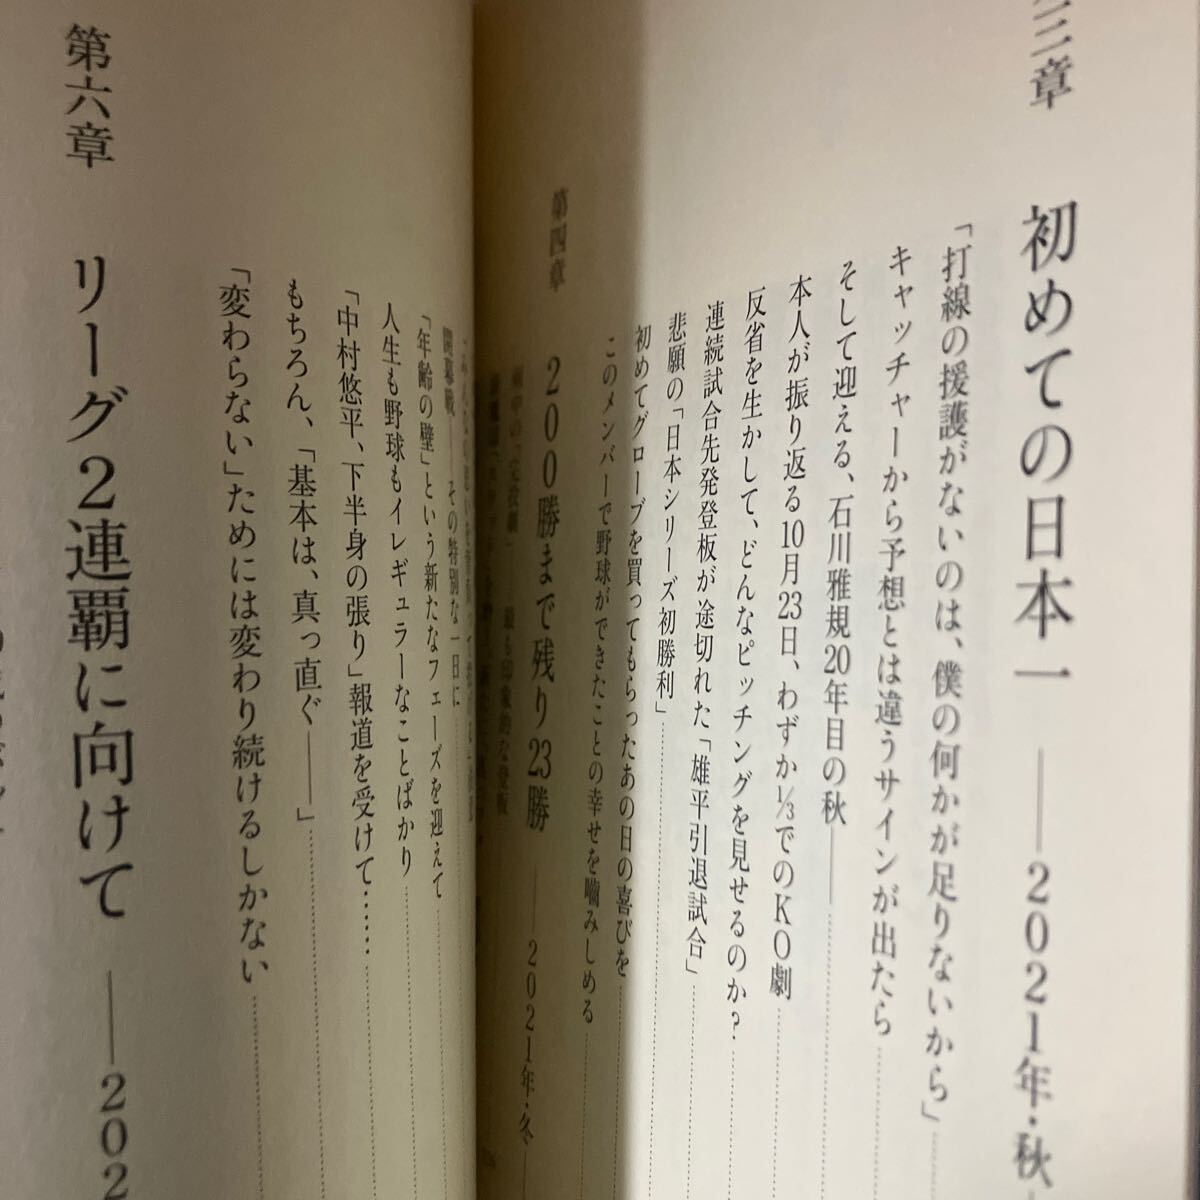 三章 初めての日本一 ――2021年・秋
「打線の援護がないのは、僕の何かが足りないから」
キャッチャーから予想とは違うサインが出たら
そして迎える、石川雅規20年目の秋――
本人が振り返る10月23日、わずか1/3でのKO劇
反省を生かして、どんなピッチングを見せるのか?
連続試合先発登板が途切れた「雄平引退試合」
悲願の「日本シリーズ初勝利」
初めてグローブを買ってもらったあの日の喜びを
このメンバーで野球ができたことの幸せを噛みしめる
第四章 200勝まで残り23勝 ――2021年・冬
最も印象的な登板
開幕戦――その特別な一日に
「年齢の壁」という新たなフェーズを迎えて
人生も野球もイレギュラーなことばかり
「中村悠平、下半身の張り」報道を受けて……
もちろん、「基本は、真っ直ぐ――」
「変わらない」ためには変わり続けるしかない
第六章 リーグ2連覇に向けて ――202